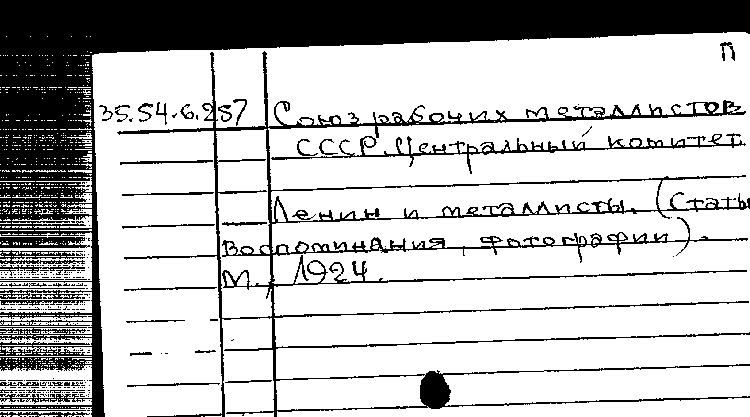 П
35.54.6.287 Союз рабочих металлистов
СССР. Центральный комитет.
Ленин и металлисты. (Статьи
воспоминания, фотографии).
М., 1924.